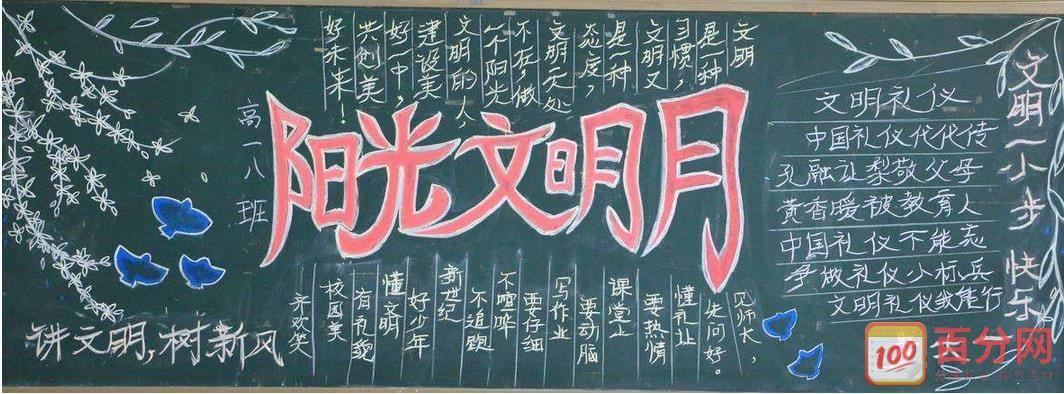 文明
是一种
习惯，
文明又
是一种
态度，
文明无处
不在，做
一个阳光
文明的人
建设美
好中，
共创美
好未来！
高一八班
阳光文明月
见师长，
先问好。
懂礼让
要热情
课堂上
要动脑
写作业
要仔细
不喧哗
不追跑
新世纪
好少年
懂文明
有礼貌
校园美
齐欢笑
讲文明，树新风
文明礼仪
中国礼仪代代传
孔融让梨敬父母
黄香暖被教育人
中国礼仪不能忘
争做礼仪小标兵
文明礼仪我能行
文明一小步 快乐
100
百分网